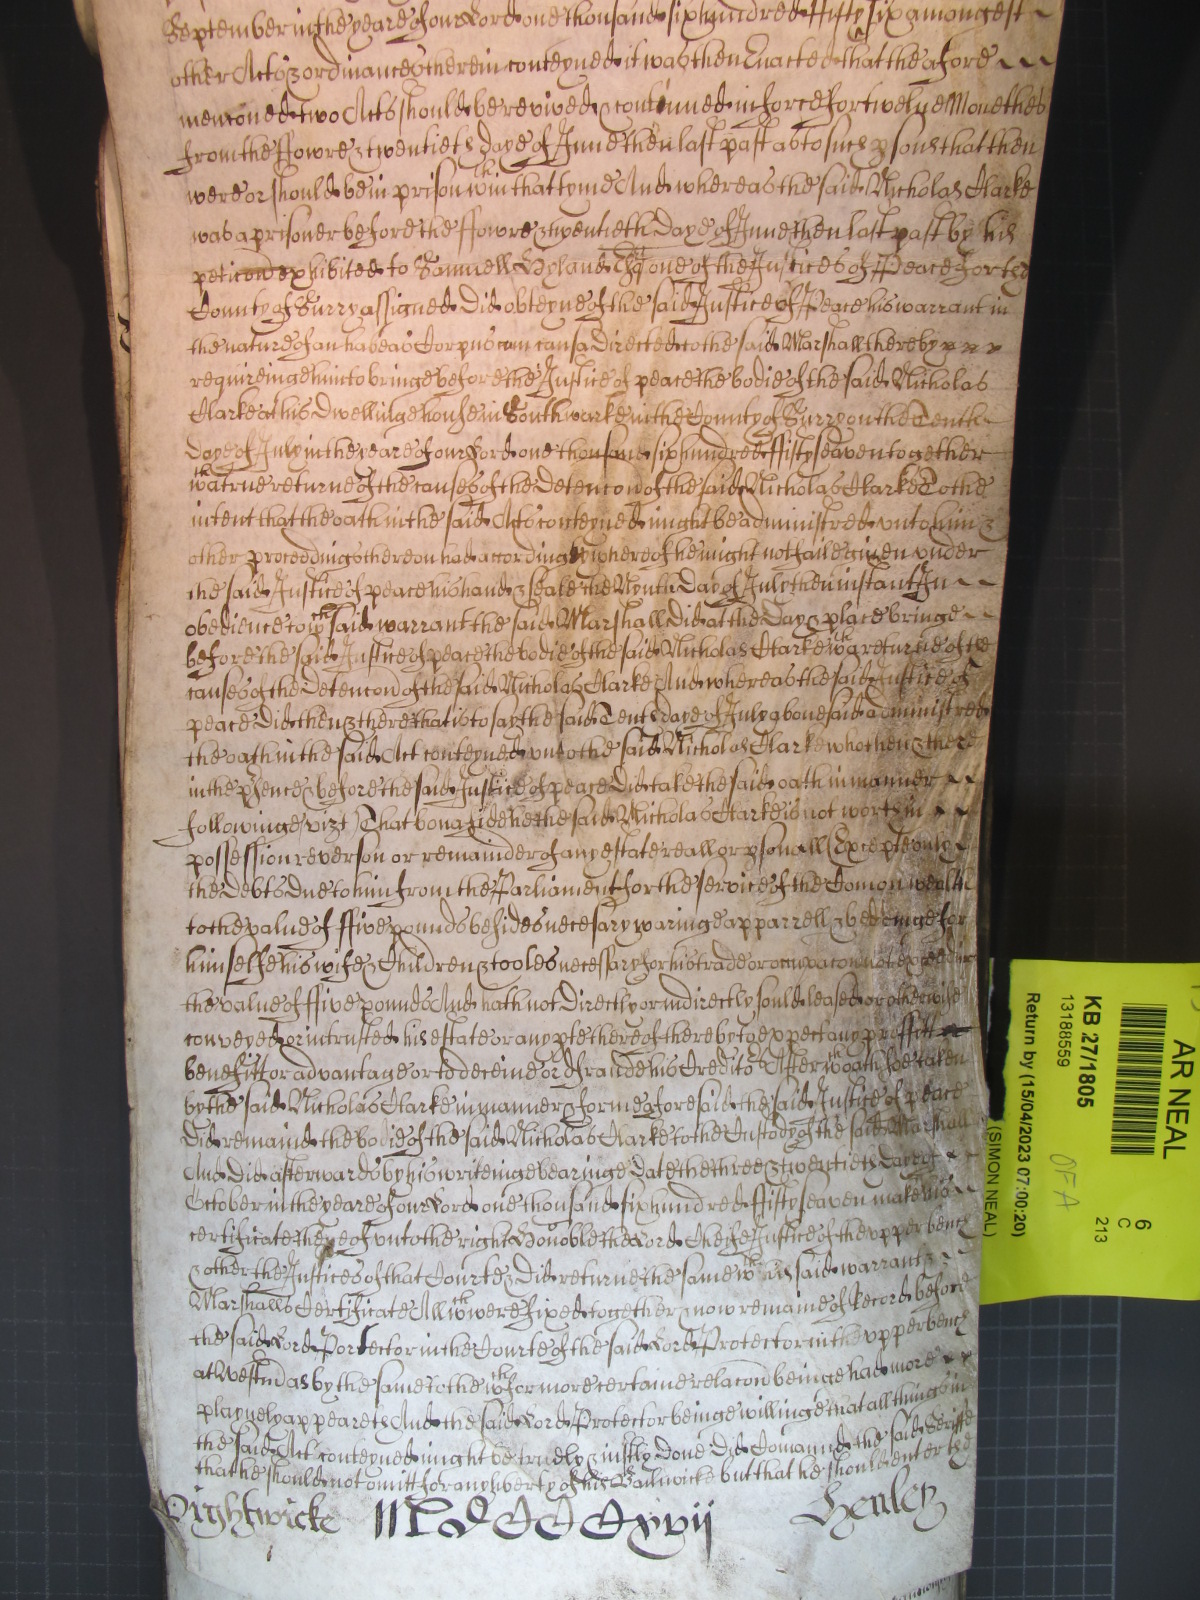 September in the yeare of our Lord one thousand six hundred fifty six amongest
other Acts & ordinances therein conteyned it was then Enacted that the afore
menconed two Acts should be revived & continued in force for twelve Monethes
from the ffowre & twentieth daye of June then last past as to such psons that then
were or should be in prison wthin that tyme And whereas the said Nicholas Clarke
was a prisoner before the ffowre & twentieth Daye of June then last past by his
peticon exhibited to Samuell Hyland Esq one of the Justices of Peace for the
County of Surry assigned Did obteyne of the said Justice of Peace his warrant in
the nature of an habeas Corpus cum causa directed to the said Marshall thereby
requireinge him to bringe before the Justice of peace the bodie of the said Nicholas
Clarke at his Dwellinge house in Southwarke in the County of Surry on the Tenth
daye of July in the yeare of our Lord one thousand six hundred ffifty seaven together
wth a true returne of the causes of the Detencon of the said Nicholas Clarke To the
intent that the oath in the said Acts conteyned might be administred unto him &
other proceedings thereon had accordingly whereof he might not faile given under
the said Justice of peace his hand & seale the Nynth Day of July then instant In
obedience to wch said warrant the said Marshall Did at the Day & place bringe
before the said Justice of peace the bodie of the said Nicholas Clarke wth a returne of the
causes of the Detencon of the said Nicholas Clarke And whereas the said Justice of
peace Did then & there that is to say the said Tenth daye of July abovesaid administred
the oath in the said Act conteyned unto the said Nicholas Clarke who then & there
in the psence & before the said Justice of peace Did take the said oath in manner
followinge vizt That bona fide he the said Nicholas Clarke is not worth in
possession reverson or remainder of any estate reall or psonall Except onely
the Debts Due to him from the Parliament for the service of the Comon wealth
to the value of ffive pounds besides necesary waringe apparrell & bedinge for
himselfe his wife & Children & tooles necessary for his trade or occupacon not exceedinge
the value of ffive pounds And hath not Directly or indirectly sould leased or otherwise
conveyed or intrusted his estate or any pte thereof thereby to expect any proffitt
benefitt or advantage or to deceive or defraude his Credito After wch oath soe taken
by the said Nicholas Clarke in manner & forme aforesaid the said Justice of peace
Did remaund the bodie of the said Nicholas Clarke to the Custody of the said Marshall
And Did afterwards by his writeinge bearinge date the three & twentieth daye of
October in the yeare of our Lord one thousand six hundred ffifty seaven make his
certificate thereof unto the right Honoble the Lord Cheife Justice of the upper bench
& other the Justices of that Courte & Did returne the same wth his said warrant &
Marshalls Certificate All wch were fixed together & now remaine of Record before
the said Lord Portector in the Courte of the said Lord Protector in the upper bench
at Westm as by the same to the wch for more certaine relacon beinge had more
playnely appeareth And the said Lord Protector beinge willinge that all things in
the said Act conteyned might be truely & justly Done Did Comaund the said Seriffe
that he should not omitt for any liberty of his Bailiwicke but that he should enter the
Wightwicke MDCCCxvii Henley
AR NEAL
KB 27/1805
13188559
Return by (15/04/2023 07:00:20)
(SIMON NEAL)
OFA
6
C
213